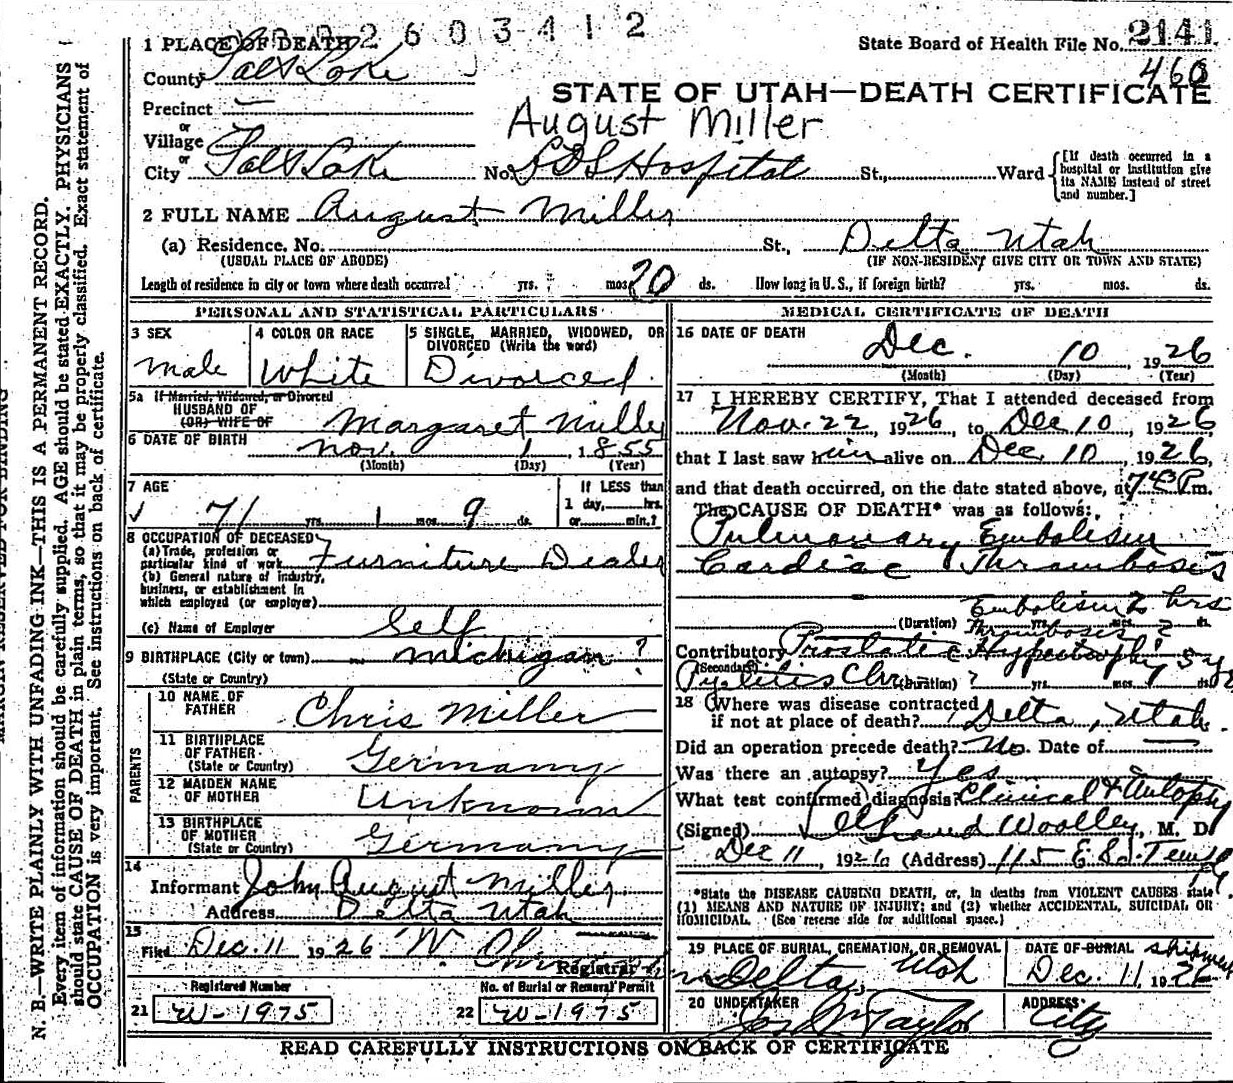 2603412
State Board of Health File No. 2141
460
1 PLACE OF DEATH
County Salt Lake
STATE OF UTAH—DEATH CERTIFICATE
Precinct —
August Miller
or
Village
or
City Salt Lake No. LDS Hospital St., Ward [If death occurred in a hospital or institution give its NAME instead of street and number.]
2 FULL NAME August Miller
(a) Residence. No. St., Delta Utah
(USUAL PLACE OF ABODE) (IF NON-RESIDENT GIVE CITY OR TOWN AND STATE)
Length of residence in city or town where death occurred yrs. mos. 20 ds. How long in U. S., if foreign birth? yrs. mos. ds.
PERSONAL AND STATISTICAL PARTICULARS
3 SEX
male
4 COLOR OR RACE
White
5 SINGLE, MARRIED, WIDOWED, OR DIVORCED (Write the word)
Divorced.
5a If Married, Widowed, or Divorced
HUSBAND OF
(OR) WIFE OF Margaret Miller
6 DATE OF BIRTH Nov. 1, 1855
(Month) (Day) (Year)
7 AGE
71 yrs. 1 mos. 9 ds.
If LESS than
1 day, hrs.
or min.?
8 OCCUPATION OF DECEASED
(a) Trade, profession or
particular kind of work Furniture Dealer
(b) General nature of industry,
business, or establishment in
which employed (or employer)
(c) Name of Employer Self
9 BIRTHPLACE (City or town) — Michigan ?
(State or Country)
PARENTS
10 NAME OF
FATHER Chris Miller
11 BIRTHPLACE
OF FATHER
(State or Country) Germany
12 MAIDEN NAME
OF MOTHER Unknown
13 BIRTHPLACE
OF MOTHER
(State or Country) Germany
14
Informant John August Miller
Address Delta Utah
15
Filed Dec. 11 1926 W.
Registrar
Registered Number No. of Burial or Removal Permit
21 W-1975 22 W-1975
MEDICAL CERTIFICATE OF DEATH
16 DATE OF DEATH
Dec. 10, 1926
(Month) (Day) (Year)
17 I HEREBY CERTIFY, That I attended deceased from
Nov. 22, 1926, to Dec 10, 1926
that I last saw him alive on Dec. 10, 1926,
and that death occurred, on the date stated above, at P.m.
The CAUSE OF DEATH* was as follows:
Pulmonary Embolism
Cardiac Thrombosis
Embolism 2 hrs
(Duration) yrs. mos. ds.
Thrombosis ?
Contributory Prostatic Hypertrophy 5 yrs
(Secondary)
Pyelitis Chr. (Duration) ? yrs. mos. ds.
18 Where was disease contracted
if not at place of death? Delta, Utah.
Did an operation precede death? No. Date of —
Was there an autopsy? Yes
What test confirmed diagnosis? Clinical & Autopsy
(Signed) Woolley, M. D.
Dec 11, 1926 (Address) 115 E. So. Temple
*State the DISEASE CAUSING DEATH, or, in deaths from VIOLENT CAUSES state
(1) MEANS AND NATURE OF INJURY; and (2) whether ACCIDENTAL, SUICIDAL OR
HOMICIDAL. (See reverse side for additional space.)
19 PLACE OF BURIAL, CREMATION, OR REMOVAL
Delta, Utah
DATE OF BURIAL shipment
Dec. 11, 1926
20 UNDERTAKER
Taylor
ADDRESS
City
READ CAREFULLY INSTRUCTIONS ON BACK OF CERTIFICATE
MARGIN RESERVED FOR BINDING
N. B.—WRITE PLAINLY WITH UNFADING INK—THIS IS A PERMANENT RECORD.
Every item of information should be carefully supplied. AGE should be stated EXACTLY. PHYSICIANS
should state CAUSE OF DEATH in plain terms, so that it may be properly classified. Exact statement of
OCCUPATION is very important. See instructions on back of certificate.